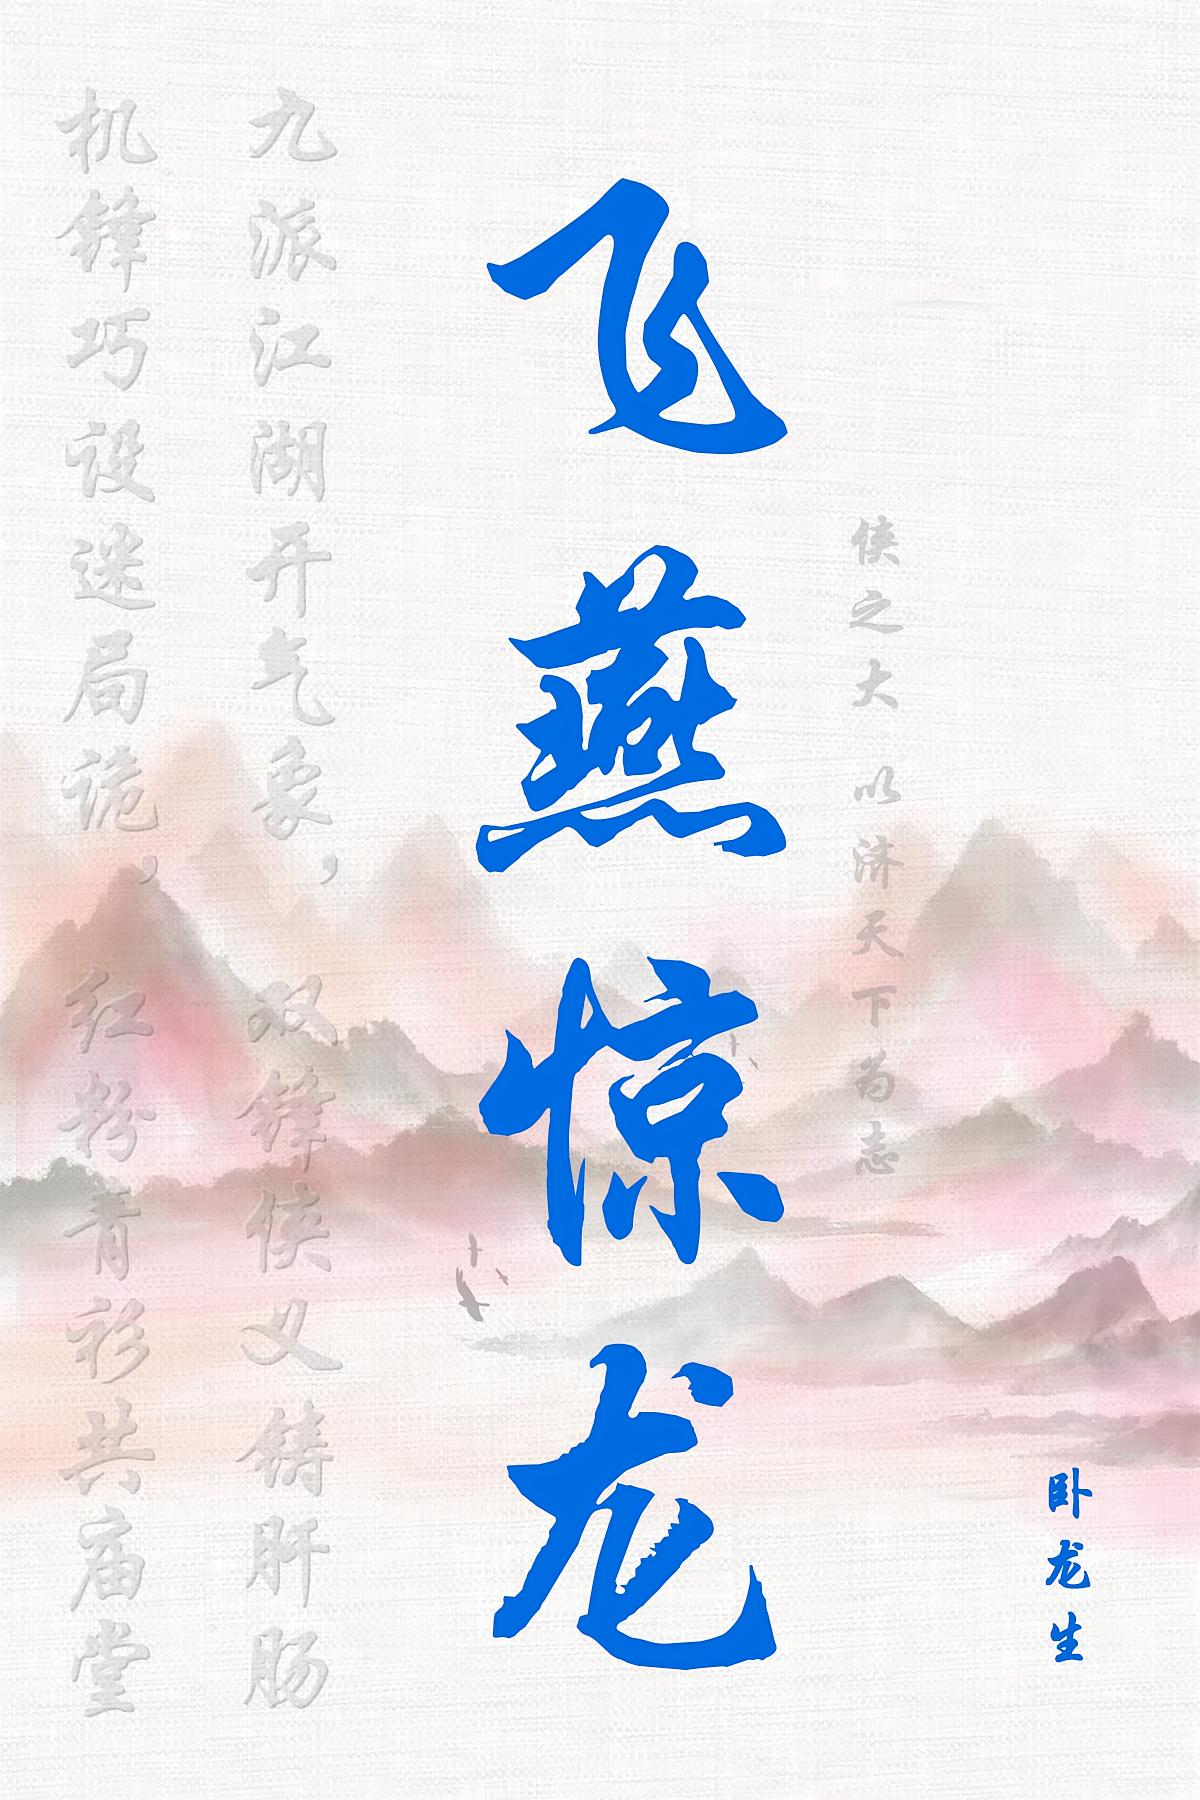 卧龙生
侠之大 以济天下为志
飞燕惊龙
九派江湖开气象，双锋侠义铸肝肠
机锋巧设迷局诡，红粉青衫共庙堂